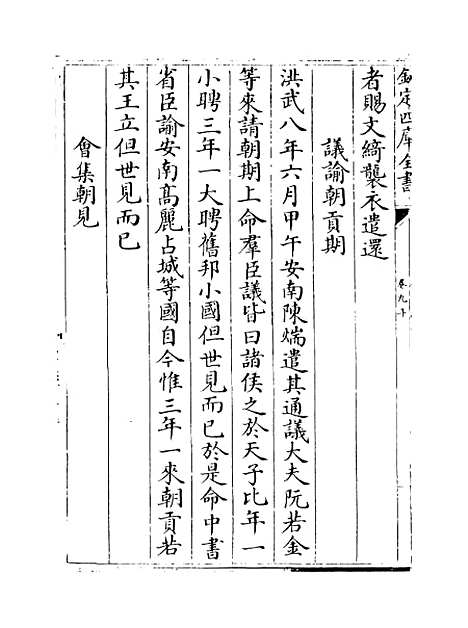 欽定四庫全書
卷九十
者賜文綺襲衣遣還
議諭朝貢期
洪武八年六月甲午安南陳煓遣其通議大夫阮若金
等來請朝期上命羣臣議皆曰諸侯之於天子比年一
小聘三年一大聘舊邦小國但世見而已於是命中書
省臣諭安南高麗占城等國自今惟三年一來朝貢若
其王立但世見而已
會集朝見